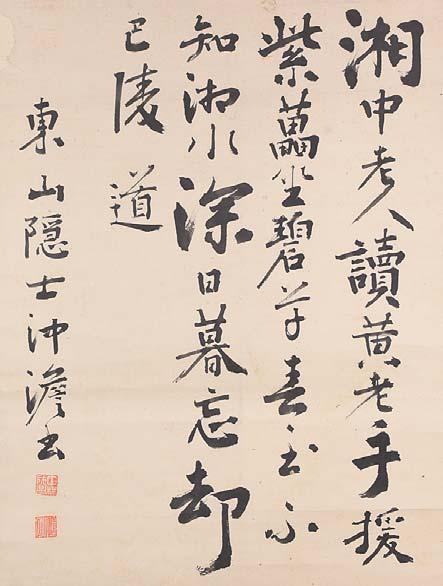 湘中老人讀黃老手援
紫藟坐碧草春至不
知湘水深日暮忘却
巴陵道
東山隠士沖澹書